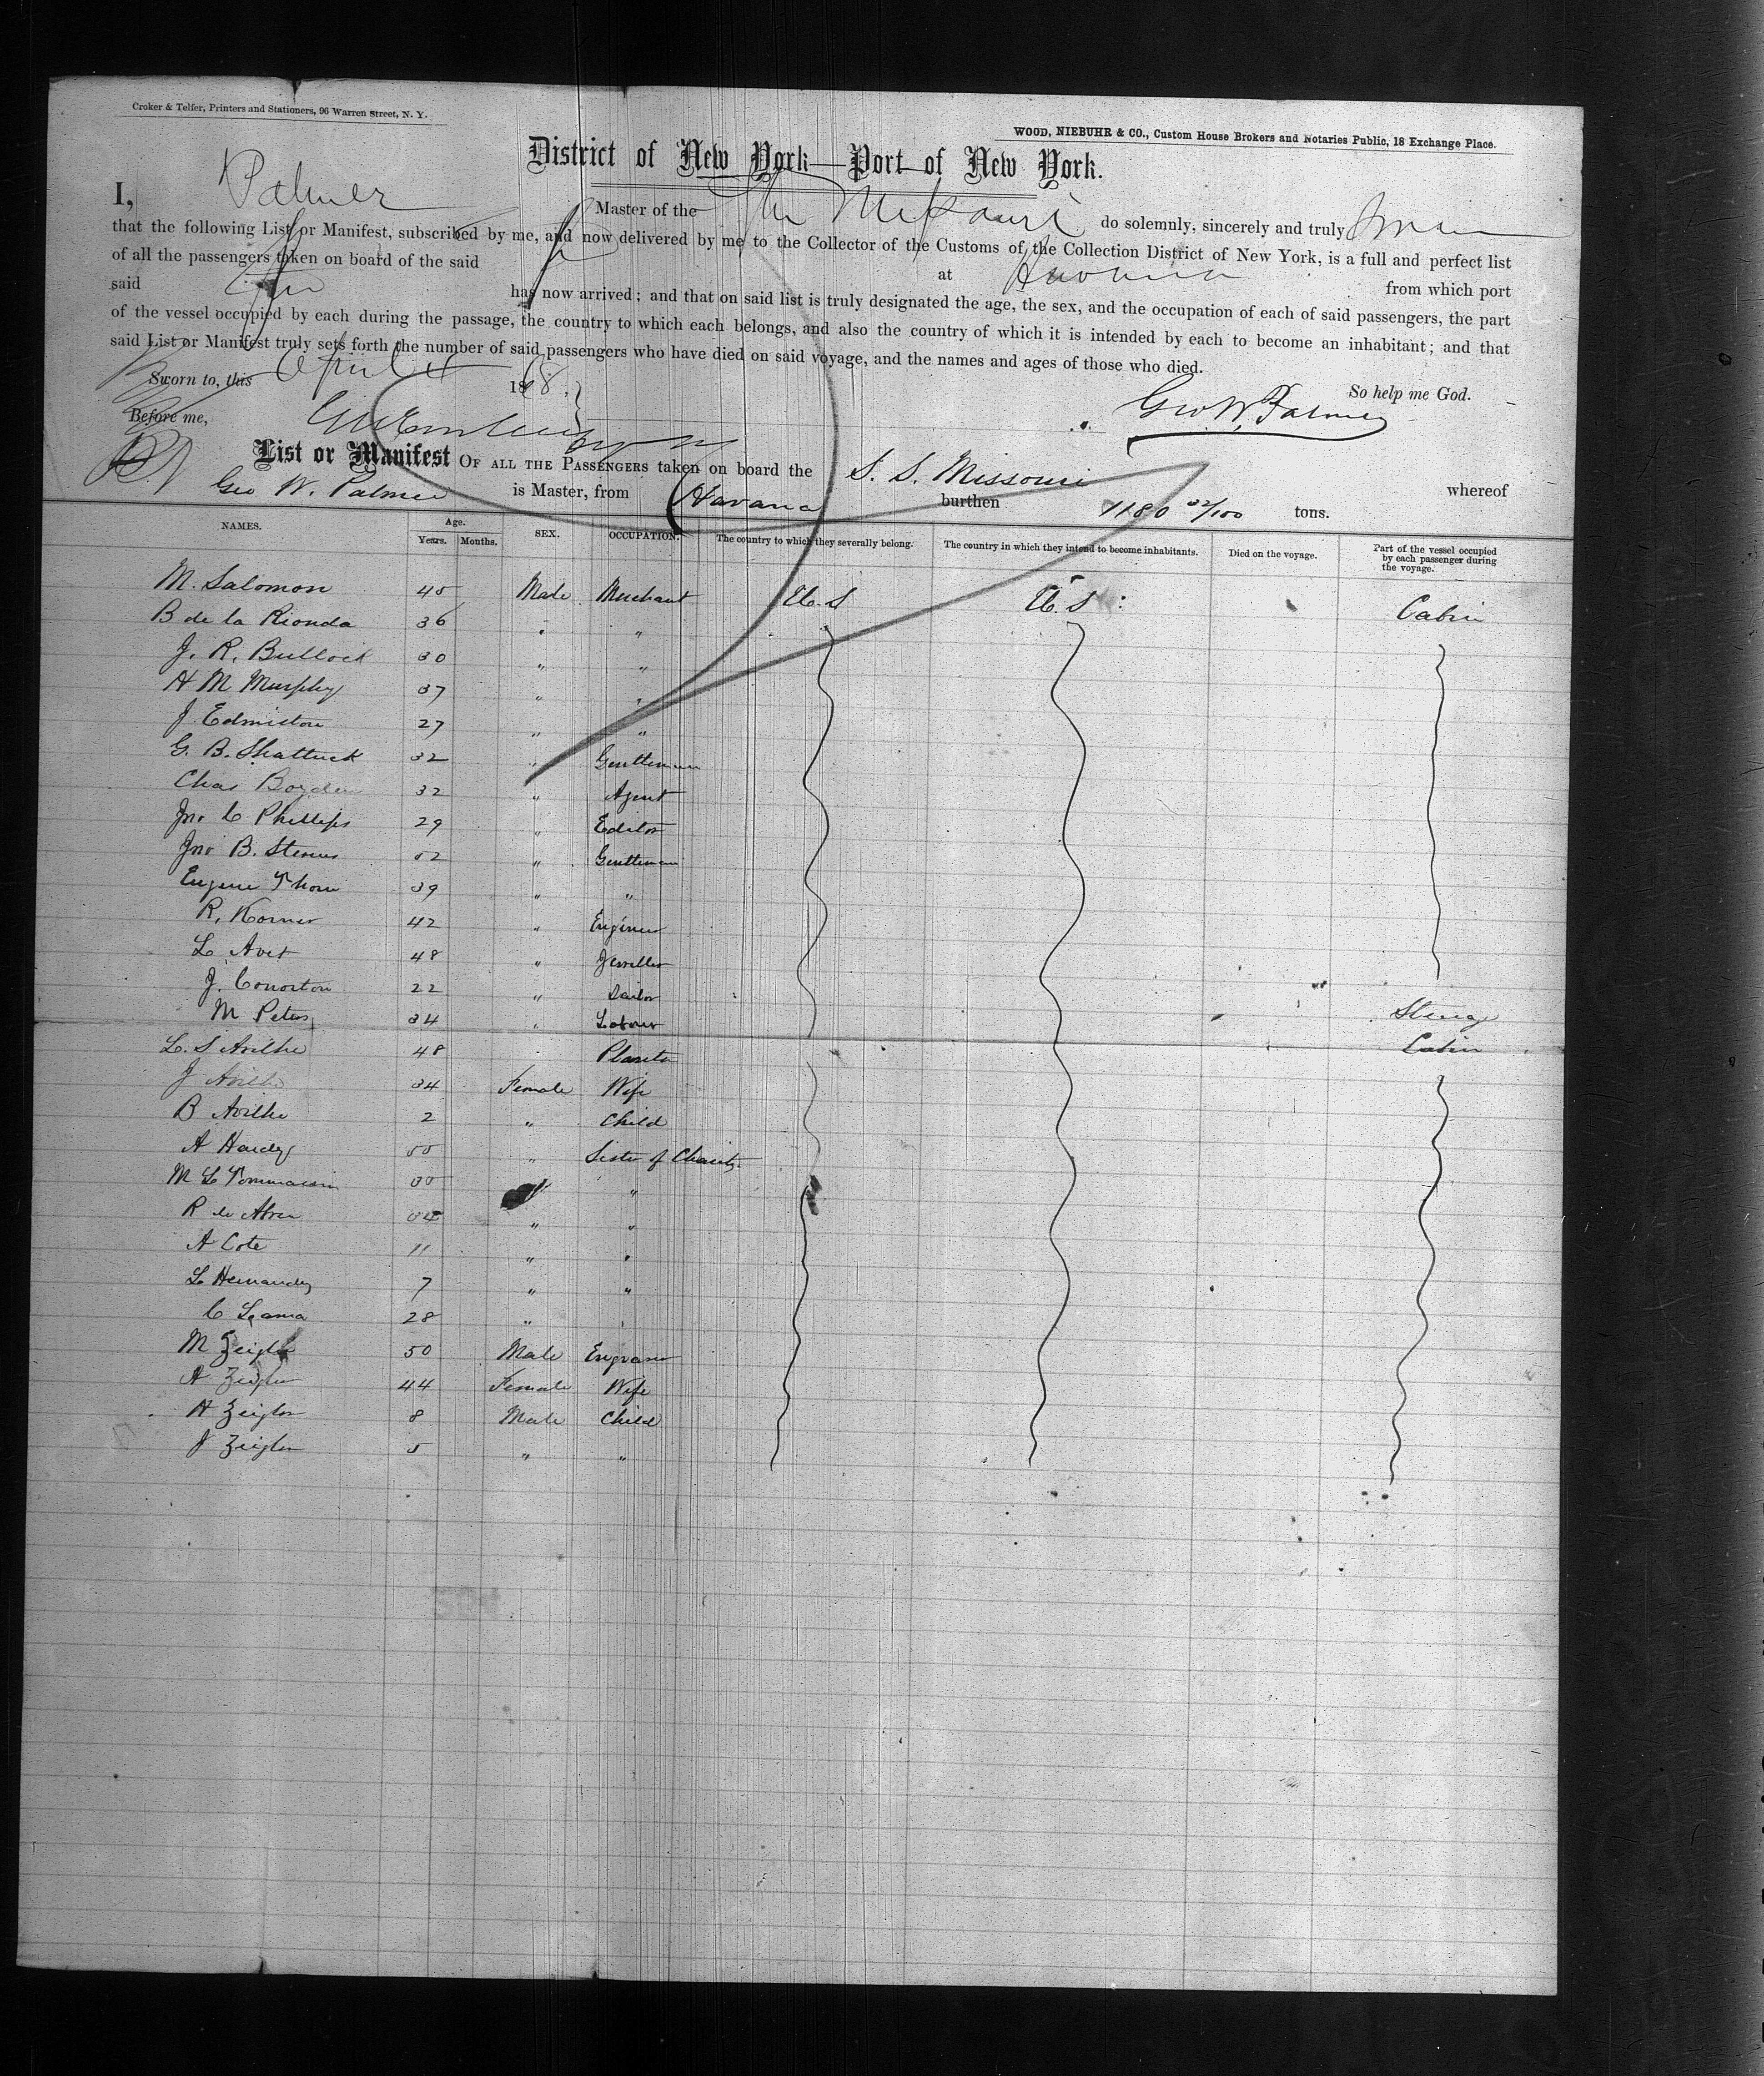 Croker & Telfer, Printers and Stationers, 96 Warren Street, N. Y.
WOOD, NIEBUHR & CO., Custom House Brokers and Notaries Public, 18 Exchange Place.
District of New York—Port of New York.
I, Palmer Master of the Str Missouri do solemnly, sincerely and truly Swear
that the following List or Manifest, subscribed by me, and now delivered by me to the Collector of the Customs of the Collection District of New York, is a full and perfect list
of all the passengers taken on board of the said Str at Havana from which port
said Str has now arrived; and that on said list is truly designated the age, the sex, and the occupation of each of said passengers, the part
of the vessel occupied by each during the passage, the country to which each belongs, and also the country of which it is intended by each to become an inhabitant; and that
said List or Manifest truly sets forth the number of said passengers who have died on said voyage, and the names and ages of those who died.
Sworn to, this April 4 1868. So help me God.
Before me, Geo. W. Palmer
List or Manifest OF ALL THE PASSENGERS taken on board the S. S. Missouri whereof
Geo W. Palmer is Master, from Havana burthen 1180 32/100 tons.
NAMES. Age. Years. Months. SEX. OCCUPATION. The country to which they severally belong. The country in which they intend to become inhabitants. Died on the voyage. Part of the vessel occupied by each passenger during the voyage.
M. Salomon 45 Male Merchant U.S U.S Cabin
B de la Rionda 36 " "
J. R. Bullock 30 " "
H M Murphy 37 " "
J Edmiston 27 " "
G. B. Shattuck 32 " Gentleman
Chas Boyden 32 " Agent
Jno C Phillips 29 " Editor
Jno B. Stevens 52 " Gentleman
Eugene Thorn 39 " "
R. Korner 42 " Engineer
L Avet 48 " Jeweller
J. Conorton 22 " Sailor
M Peters 34 " Laborer Steerage
L. S Avilhe 48 Planter Cabin
J Avilhe 34 Female Wife
B Avilhe 2 " Child
A Hardy 55 " Sister of Charity
M L Tommassin 35 " "
R de Abreu 34 " "
A Cote 11 " "
L Hernandez 7 " "
C Lama 28 "
M Zeigler 50 Male Engraver
A Zeigler 44 Female Wife
H Zeigler 8 Male Child
J Zeigler 5 " "